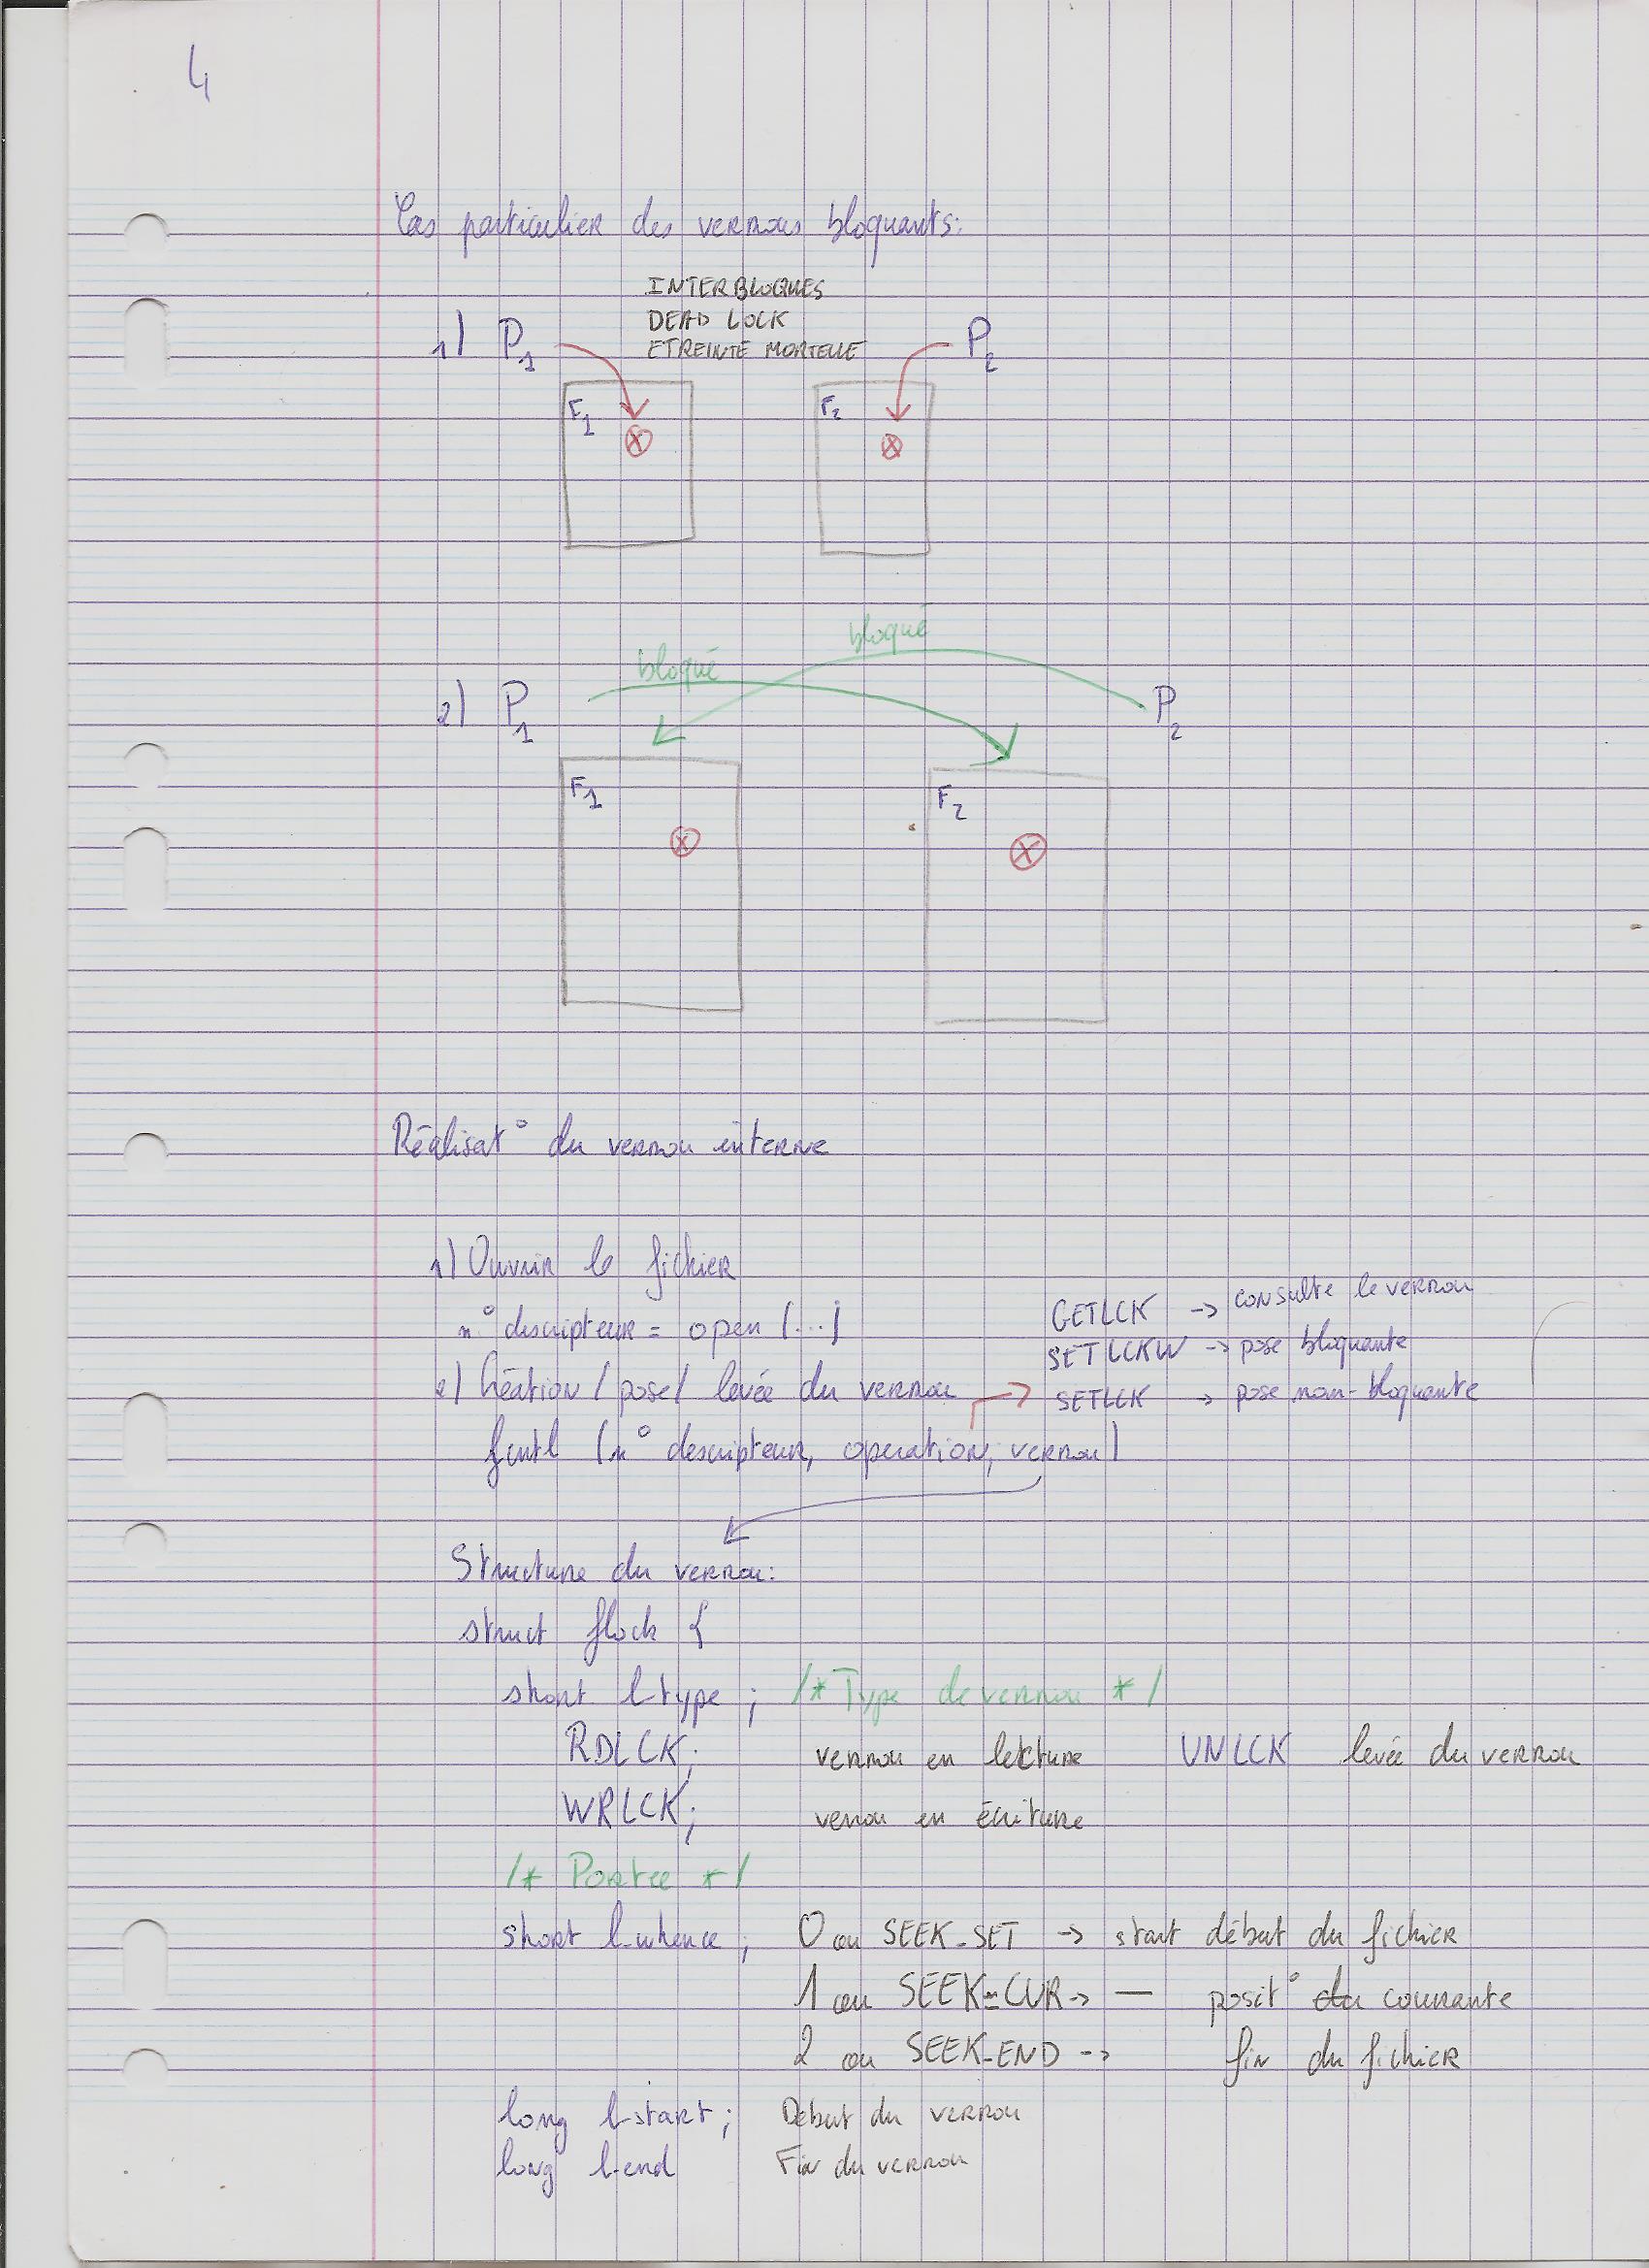 4
Cas particulier des verrous bloquants:
INTERBLOQUES
DEAD LOCK
ETREINTE MORTELLE
1) P1 P2
F1 F2
bloqué
bloqué
2) P1 P2
F1 F2
Réalisat° du verrou interne
1) Ouvrir le fichier
n° descripteur = open (...)
GETLCK -> consulte le verrou
SETLCKW -> pose bloquante
2) Création / pose / levée du verrou -> SETLCK -> pose non-bloquante
fcntl (n° descripteur, operation, verrou)
Structure du verrou:
struct flock {
short l_type ; /* Type de verrou */
RDLCK; verrou en lecture UNLCK levée du verrou
WRLCK; verrou en écriture
/* Portee */
short l_whence ; 0 ou SEEK_SET -> start début du fichier
1 ou SEEK_CUR -> — posit° du courante
2 ou SEEK_END -> fin du fichier
long l_start ; Debut du verrou
long l_end Fin du verrou